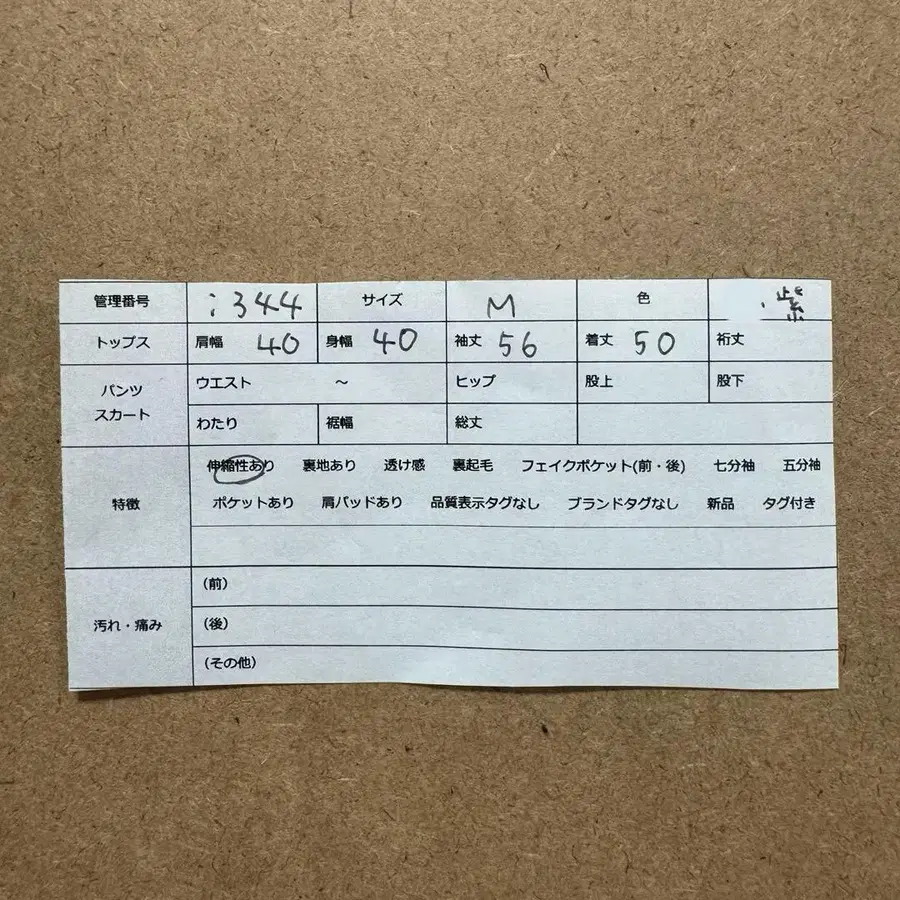 管理番号 i344 サイズ M 色 紫
トップス 肩幅 40 身幅 40 袖丈 56 着丈 50 裄丈
パンツ ウエスト ～ ヒップ 股上 股下
スカート わたり 裾幅 総丈
伸縮性あり 裏地あり 透け感 裏起毛 フェイクポケット(前・後) 七分袖 五分袖
特徴 ポケットあり 肩パッドあり 品質表示タグなし ブランドタグなし 新品 タグ付き
(前)
汚れ・痛み (後)
(その他)